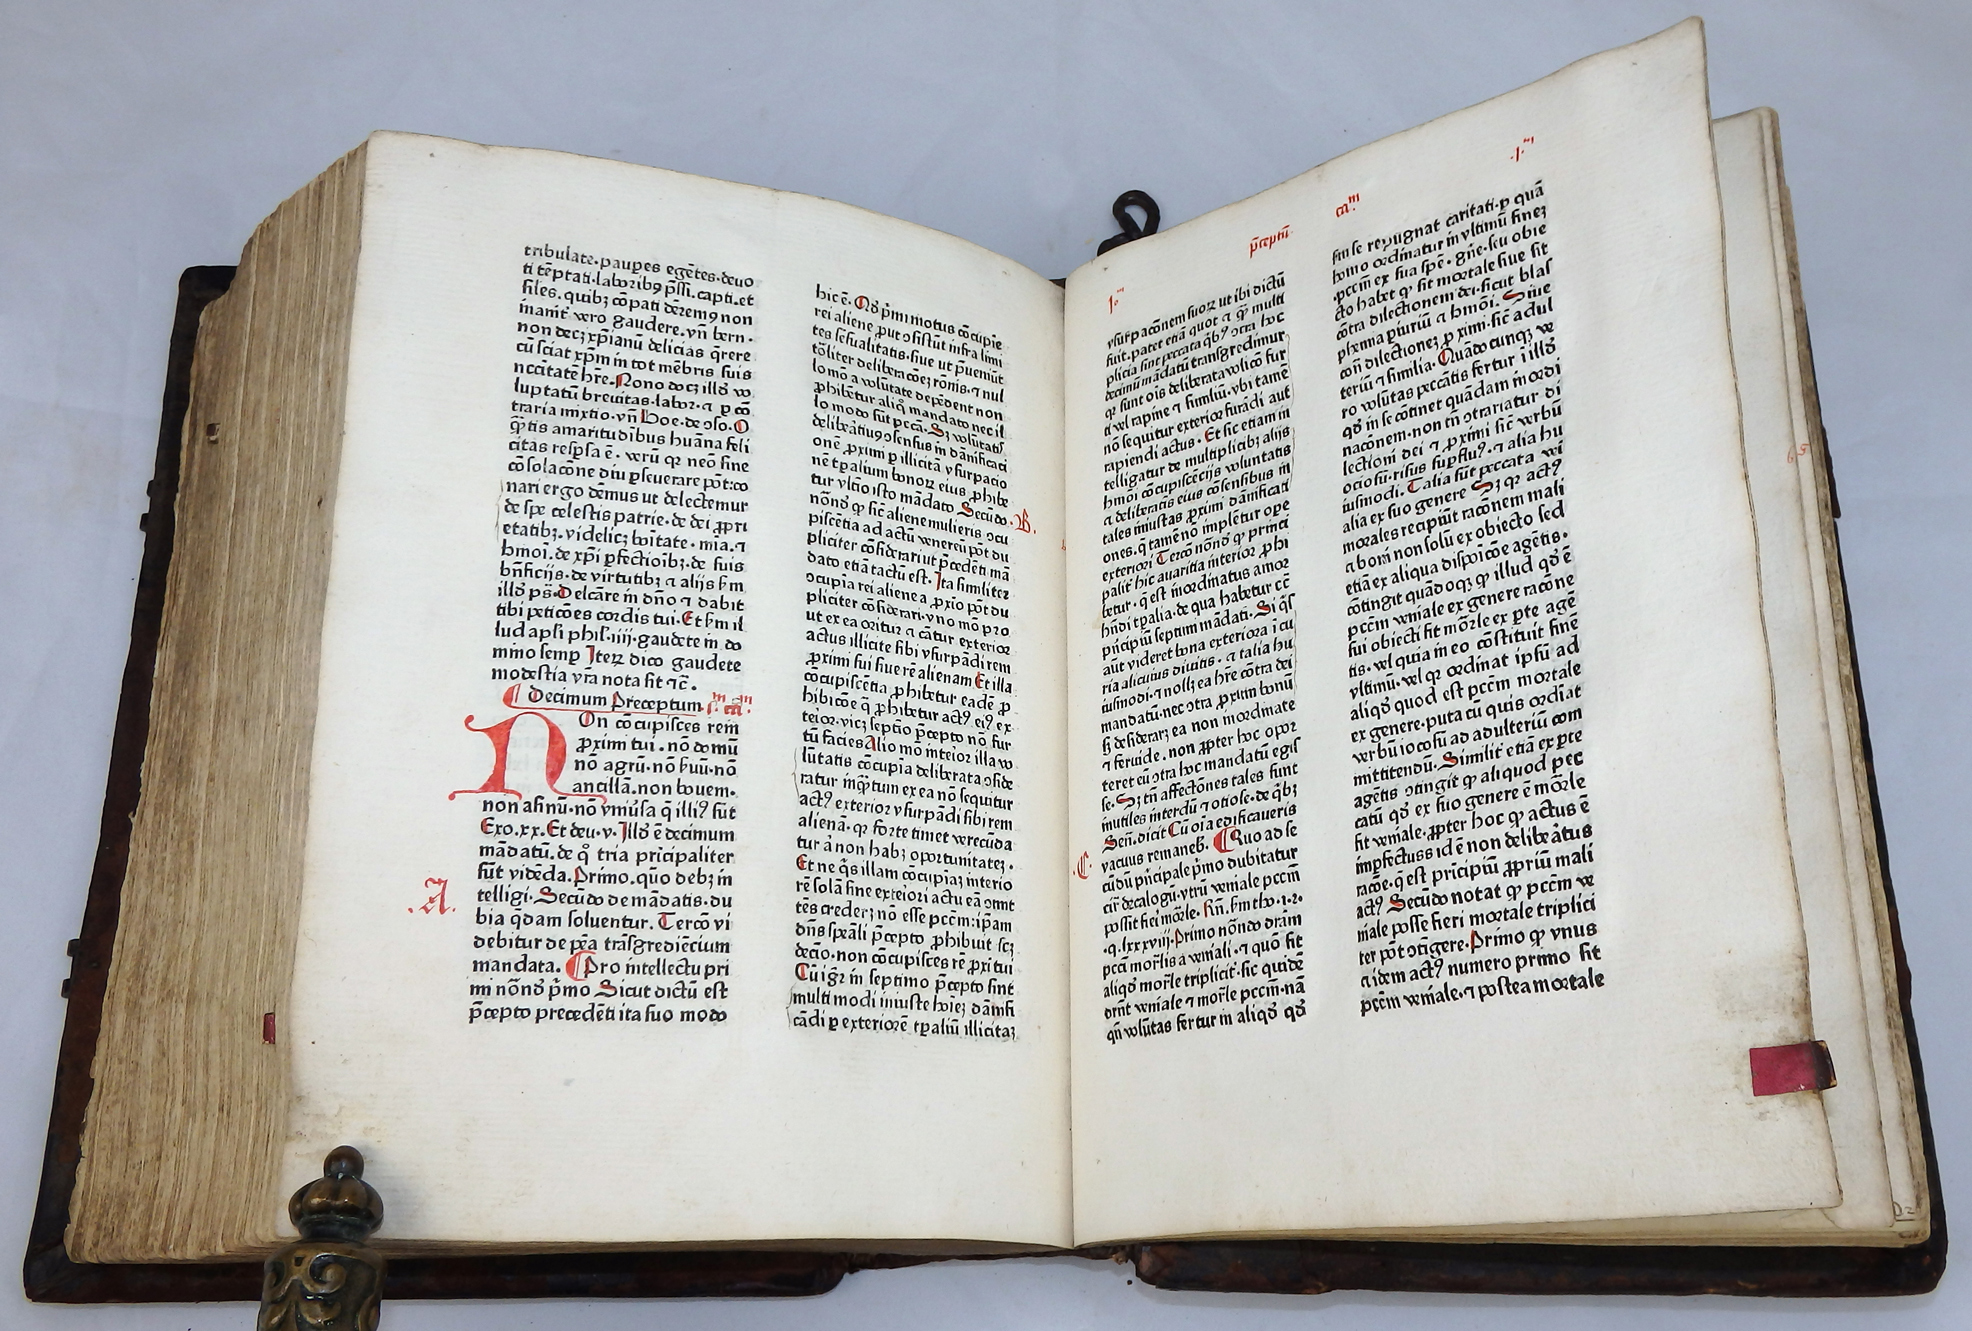 tribulate·paup̲es egētes·deuo
ti tēptati·laborib9 p̄ssi·capti·et
files·quibꝫ cōpati dēremꝰ non
inanit̄ vero gaudere·vn̄ bern·
non decꝫ xp̄ianū delicias q̄rere
cū sciat xp̄m in tot mēbris suis
nccitatē hr̄e·Nono docꝫ illd̄ vo
luptatū breuitas·labor·⁊ p̲ cō
traria mixtio·vn̄ Boe·de ↄso·O
q̄ꝫtis amaritudibus huāna feli
citas resp̲sa ē·verū qꝛ neō sine
cōsolacōne diu p̲seuerare pōt:co
nari ergo dēmus ut delectemur
de spe celestis patrie·de dei ꝓpri
etatibꝫ·videlicꝫ boitate·mia·⁊
hmōi·de xp̄i p̲fectioibꝫ·de suis
bn̄ficijs·de virtutibꝫ ⁊ alijs s̄m
illd̄ ps·Delcāre in dn̄o ⁊ dabit
tibi peticōes cordis tui·Et s̄m il
lud apl̄i phil̄·iiij·gaudete in do
mino semp̲ Iteꝝ dico gaudete
modestia vr̄a nota sit ⁊c̄·
Decimum Preceptum ca̅m
NOn cōcupisces rem
ꝓximi tui·nō domū
nō agrū·nō s̄uū·nō
ancillā·non bouem·
non asinū·nō vniūsa q̄ illiꝰ sūt
Exo·xx·Et deu·v·Illd̄ ē decimum
mādatū·de qͦ tria prīcipaliter
sūt vidēda·Primo·quō debꝫ in
A
telligi·Secūdo de mādatis·du
bia q̄dam soluentur·Tercō vi
debitur de pēa trāsgrediēcium
mandata·Pro intellectu pri
mi nōnd̄ p̄mo Sicut dictū est
p̄cepto precedēti ita suo modo
hic ē·Qd̄ p̄mi motus cōcupie
rei aliene ꝓut ↄsistūt infra limi
tes sēsualitatis·siue ut p̄ueniūt
tōliter deliberacōeꝫ rōnis·⁊ nul
lomō a volūtate depēdent non
ꝓhibētur aliq̄ mandato nec il
lo modo sūt pccā·Sꝫ volūtatꝭ
delibeātiuꝰ ↄsensus in dānificati
onē ꝓximi p̲ illicitā vsurpacio
nē tp̲alium bonoꝝ eius ꝓhibe
tur vltīo isto mādato Secūdo·
B.
nōnd̄ qͩ sic̄ aliene mulieris ↄcu
piscētia ad actū venereū pōt du
pliciter cōsiderari ut p̄cedēti mā
dato etiā tactū est·Ita similiter
ↄcupīa rei aliene a ꝓxīo pōt du
pliciter cōsiderari·vno mō pro
ut ex ea oritur ⁊ cātur exterior
actus illicite sibi vsurpādi rem
ꝓximi sui siue rē alienam Et illa
cōcupiscētia ꝓhibetur eadē ꝓ
hibicōe q̄ ꝓhibetur actꝰ eiꝰ ex·
teior·vicꝫ septīo p̄cepto nō fur
tū facies Alio mō inteior illa vo
lūtatis cōcupīa deliberata ↄside
ratur inq̄ꝫtum ex ea nō sequitur
actꝰ exterior vsurpādi sibi rem
alienā·qꝛ forte timet verecūda
tur aͧ non habꝫ oportunitateꝫ·
Et ne q̄s illam cōcupīaꝫ interio
rē solā sine exteiori actu eā comt
tēs crederꝫ nō esse pccm̄:ip̄am
dn̄s speāli p̄cepto ꝓhibuit scꝫ
decīo·non cōcupisces rē ꝓxi tui
Cū igr̄ in septimo p̄cepto sint
multi modi iniuste hoieꝫ dāmfi
cādi p̲ exteriorē tp̲aliū illicitaꝫ
p̄ceptū·
ca̅m
vsurpacōnem suoꝝ ut ibi dictū
fuit·patet etiā quot ⁊ qͣꝫ multi
plicia sint peccata q̄bꝰ ↄtra hoc
decimū mādatū transgredimur
qꝛ sunt oīs deliberata volicō fur
ti vel rapine ⁊ similiū·vbi tamē
nō sequitur exterior furādi aut
rapiendi actus·Et sic etiam in
telligatur de multiplicibꝫ alijs
hmōi cōcupiscēcijs voluntatis
⁊ deliberatis eius cōsensibus in
tales iniustas ꝓximi dānificati
ones·q̄ tamē nō implētur ope
exteriori Tercō nōnd̄ qꝫ prīnci
palit̄ hic auaritia interior ꝓhi
betur·q̄ est inordinatus amor
hn̄di tp̲alia·de qua habetur cc̄
prīcipiū septimi mādati·Si q̄s
aūt videret bona exteriora ī cu
ria alicuius diuitis·⁊ talia hu
iusmodi·⁊ nollꝫ ea hr̄e cōtra dei
mandatū·nec ↄtra ꝓximi bonū
sꝫ desiderarꝫ ea non inordinate
⁊ feruide·non ꝓpter hoc opor
teret eū ↄtra hoc mandatū egis
se·Sꝫ tn̄ affectōnes tales sunt
inutiles interdū ⁊ otiose·de q̄bꝫ
Sen̄·dicit Cū oīa edificaueris
C.
vacuus remaneb̄·Quo ad se
cūdū prīcipale p̄mo dubitatur
cir̄ decalogū·vtrū veniale pccm̄
possit fieī mōrle·Rn̄·s̄m tho·1·2·
·q·lxxxviij·Primo nōndo dr̄am
pccī mor̄lis a veniali·⁊ quō fit
aliqd̄ mōrle triplicit̄·sic quidē
ornt̄ veniale ⁊ mor̄le pccm̄·nā
qn̄ volūtas fertur in aliqd̄ qd̄
fin se repugnat caritati·p̲ quā
homo ordinatur in vltimū fineꝫ
·pccm̄ ex sua spē·gn̄e·seu obie
cto habet qꝫ sit mortale siue sit
cōtra dilectionem dei·sicut blas
phemia p̲iuriū ⁊ hmōi·Siue
con̄ dilectioneꝫ ꝓximi·sic̄ adul
teriū ⁊ similia·Quādo cunqꝫ ve
ro volūtas peccātis fertur ī illd̄
qd̄ in se cōtinet quādam inordi
nacōnem·non tn̄ ↄtrariatur di
lectioni dei ⁊ ꝓximi sic̄ verbū
ociosū·risus sup̲fluꝰ·⁊ alia hu
iusmodi·Talia sūt peccata ve
alia ex suo genere Sꝫ qꝛ actꝰ
morales recipiūt racōnem mali
⁊ boni non solū ex obiecto sed
etiā ex aliqua dispoicōe agētis·
cōtingit quādoqꝫ qꝫ illud qd̄ ē
pccm̄ veniale ex genere racōne
sui obiecti fit mōrle ex p̲te agē
tis·vel quia in eo cōstituit finē
vltimū·vel qꝛ ordinat ip̄sū ad
aliqd̄ quod est pccm̄ mortale
ex genere·puta cū quis ordīat
verbū iocosū ad adulteriū com
mittendū·Similit̄ etiā ex p̲te
agētis ↄtingit qꝫ aliquod pec
catū qd̄ ex suo genere ē mōrle
fit veniale·ꝓpter hoc qꝫ actus ē
imp̲fectus id ē non delibeātus
racōe·q̄ est prīcipiū ꝓpriū mali
actꝰ Secūdo notat qꝫ pccm̄ ve
niale posse fieri mortale triplici
ter pōt ↄtīgere·Primo qꝫ vnus
⁊ idem actꝰ numero primo sit
pccm̄ veniale·⁊ postea mortale